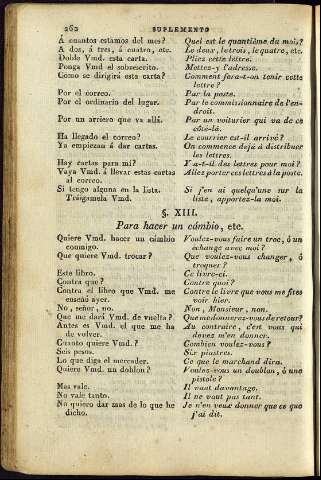 262 SUPLEMENTO
Á cuantos estamos del mes?
A dos, á tres, á cuatro, etc.
Doble Vmd. esta carta.
Ponga Vmd el sobrescrito.
Como se dirigirá esta carta?
Por el correo.
Por el ordinario del lugar.
Por un arriero que va allá.
Ha llegado el correo?
Ya empiezan á dar cartas.
Hay cartas para mí?
Vaya Vmd. á llevar estas cartas
al correo.
Si tengo alguna en la lista.
Tráigamela Vmd.
Quel est le quantième du mois?
Le deux, le trois, le quatre, etc.
Pliez cette lettre.
Mettez-y l'adresse.
Comment fera-t-on tenir cette
lettre?
Par la poste.
Par le commissionnaire de l'en-
droit.
Par un voiturier qui va de ce
côté-là.
Le courrier est-il arrivé?
On commence dejà á distribuer
les lettres.
Y a-t-il des lettres pour moi?
Allez porter ces lettres á la poste.
Si j'en ai quelqu'une sur la
liste, apportez-la moi.
§. XIII.
Para hacer un cámbio, etc.
Quiere Vmd. hacer un cámbio
conmigo.
Que quiere Vmd. trocar?
Este libro.
Contra que?
Contra el libro que Vmd. me
enseñó ayer.
No, señor, no.
Que me dará Vmd. de vuelta?
Antes es Vmd. el que me ha
de volver.
Cuanto quiere Vmd.?
Seis pesos.
Lo que diga el mercader.
Quiere Vmd. un doblon?
Mas vale.
No vale tanto.
No quiero dar mas de lo que he
dicho.
Voulez-vous faire un troc, ó un
échange avec moi?
Que voulez-vous changer, ó
troquer?
Ce livre-ci.
Contre quoi?
Contre le livre que vous me fites
voir hier.
Non, Monsieur, non.
Que me donnerez-vous de retour?
Au contraire, c'est vous qui
devez m'en donner.
Combien voulez-vous?
Six piastres.
Ce que le marchand dira.
Voulez-vous un doublon, ó une
pistole?
Il vaut davantage.
Il ne vaut pas tant.
Je n'en veux donner que ce que
j'ai dit.